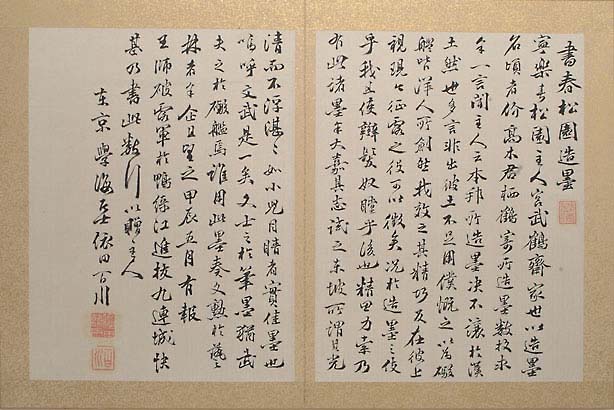 書春松園造墨
寧樂春松園主人宮武鶴齋家世以造墨
名頃者价高木君栖鶴寄所造墨數挺求
余一言聞主人云本邦所造墨決不讓於漢
土然世多言非出彼土不足用僕慨之以為礮
艦皆洋人所創然我效之其精巧反在彼上
視現今征露之役可以徵矣况於造墨之伎
乎我豈使辮髮奴瞠乎後也精思力索乃
有此諸墨余大嘉其志試之東坡所謂其光
清而不浮湛々如小兒目睛者實佳墨也
嗚呼文武是一矣文士之於筆墨猶武
夫之於礮艦焉誰用此墨奏文勲於藝
林者余企足望之甲辰五月有報
王師破露軍於鴨緑江進拔九連城快
甚乃書此數行以贈主人
東京學海居士依田百川